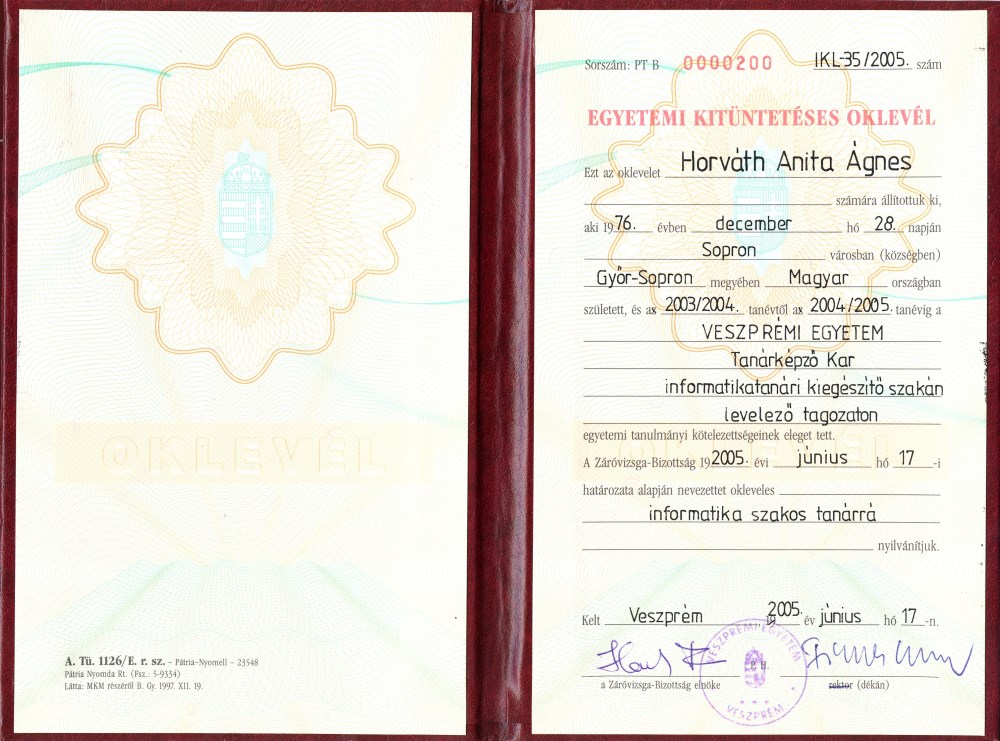 OKLEVÉL
A. Tü. 1126/E. r. sz. – Pátria-Nyomell – 23548
Pátria Nyomda Rt. (Fsz.: 5-9334)
Látta: MKM részéről B. Gy. 1997. XII. 19.
Sorszám: PT B 0000200 IKL-35/2005. szám
EGYETEMI KITÜNTETÉSES OKLEVÉL
Ezt az oklevelet Horváth Anita Ágnes
számára állítottuk ki,
aki 1976. évben december hó 28. napján
Sopron városban (községben)
Győr-Sopron megyében Magyar országban
született, és ax 2003/2004. tanévtől ax 2004/2005. tanévig a
VESZPRÉMI EGYETEM
Tanárképző Kar
informatikatanári kiegészítő szakán
levelező tagozaton
egyetemi tanulmányi kötelezettségeinek eleget tett.
A Záróvizsga-Bizottság 19 2005. évi június hó 17 -i
határozata alapján nevezettet okleveles
informatika szakos tanárrá
nyilvánítjuk.
Kelt Veszprém 2005. év június hó 17 -n.
VESZPRÉMI EGYETEM
P. H.
VESZPRÉM
a Záróvizsga-Bizottság elnöke rektor (dékán)